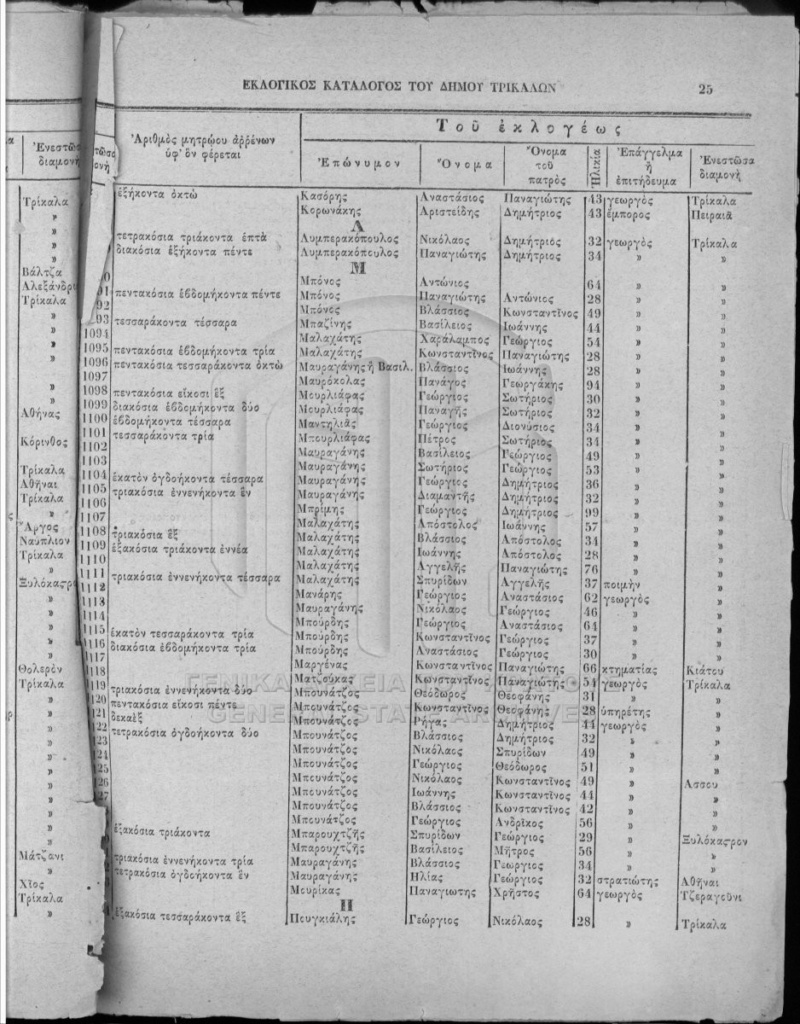 ΕΚΛΟΓΙΚΟΣ ΚΑΤΑΛΟΓΟΣ ΤΟΥ ΔΗΜΟΥ ΤΡΙΚΑΛΩΝ 25
Ἐνεστῶσα διαμονὴ
Τρίκαλα
»
»
»
»
Βάλτζα
Ἀλεξάνδρ
Τρίκαλα
»
»
»
»
»
»
Ἀθήνας
»
Κόρινθος
»
Τρίκαλα
Ἀθῆναι
Τρίκαλα
»
Ἄργος
Ναύπλιον
Τρίκαλα
»
Ξυλόκαςρο
»
»
»
»
»
Θολερὸν
Τρίκαλα
»
»
»
»
»
»
»
»
»
»
»
Μάτζανι
»
Χῖος
Τρίκαλα
»
Ἀριθμὸς μητρῴου ἀῤῥένων ὑφ' ὃν φέρεται
Τοῦ ἐκλογέως
Ἐπώνυμον Ὄνομα Ὄνομα τοῦ πατρὸς Ἡλικία Ἐπάγγελμα ἢ ἐπιτήδευμα Ἐνεστῶσα διαμονὴ
ἑξήκοντα ὀκτὼ Κασόρης Ἀναστάσιος Παναγιώτης 43 γεωργὸς Τρίκαλα
Κορωνάκης Ἀριστείδης Δημήτριος 43 ἔμπορος Πειραιᾶ
Λ
τετρακόσια τριάκοντα ἑπτὰ Λυμπερακόπουλος Νικόλαος Δημήτριος 32 γεωργὸς Τρίκαλα
διακόσια ἑξήκοντα πέντε Λυμπερακόπουλος Παναγιώτης Δημήτριος 34 » »
Μ
Μπόνος Ἀντώνιος 64 » »
91 πεντακόσια ἑβδομήκοντα πέντε Μπόνος Παναγιώτης Ἀντώνιος 28 » »
92 Μπόνος Βλάσσιος Κωνσταντῖνος 49 » »
93 τεσσαράκοντα τέσσαρα Μπαζίνης Βασίλειος Ἰωάννης 44 » »
1094 Μαλαχάτης Χαράλαμπος Γεώργιος 54 » »
1095 πεντακόσια ἑβδομήκοντα τρία Μαλαχάτης Κωνσταντῖνος Παναγιώτης 28 » »
1096 πεντακόσια τεσσαράκοντα ὀκτὼ Μαυραγάνης ἢ Βασιλ. Βλάσσιος Ἰωάννης 28 » »
1097 Μαυρόκολας Πανάγος Γεωργάκης 94 » »
1098 πεντακόσια εἴκοσι ἓξ Μουρλιάφας Γεώργιος Σωτήριος 30 » »
1099 διακόσια ἑβδομήκοντα δύο Μουρλιάφας Παναγῆς Σωτήριος 32 » »
1100 ἑβδομήκοντα τέσσαρα Μαντηλιᾶς Γεώργιος Διονύσιος 34 » »
1101 τεσσαράκοντα τρία Μπουρλιάφας Πέτρος Σωτήριος 34 » »
1102 Μαυραγάνης Βασίλειος Γεώργιος 49 » »
1103 Μαυραγάνης Σωτήριος Γεώργιος 53 » »
1104 ἑκατὸν ὀγδοήκοντα τέσσαρα Μαυραγάνης Γεώργιος Δημήτριος 36 » »
1105 τριακόσια ἐννενήκοντα ἓν Μαυραγάνης Διαμαντῆς Δημήτριος 32 » »
1106 Μπρίμης Γεώργιος Δημήτριος 99 » »
1107 Μαλαχάτης Ἀπόστολος Ἰωάννης 57 » »
1108 τριακόσια ἓξ Μαλαχάτης Βλάσσιος Ἀπόστολος 34 » »
1109 ἑξακόσια τριάκοντα ἐννέα Μαλαχάτης Ἰωάννης Ἀπόστολος 28 » »
1110 Μαλαχάτης Ἀγγελῆς Παναγιώτης 76 » »
1111 τριακόσια ἐννενήκοντα τέσσαρα Μαλαχάτης Σπυρίδων Ἀγγελῆς 37 ποιμὴν »
1112 Μανάρης Γεώργιος Ἀναστάσιος 62 γεωργὸς »
1113 Μαυραγάνης Νικόλαος Γεώργιος 46 » »
1114 Μπούρδης Γεώργιος Ἀναστάσιος 64 » »
1115 ἑκατὸν τεσσαράκοντα τρία Μπούρδης Κωνσταντῖνος Γεώργιος 37 » »
1116 διακόσια ἑβδομήκοντα τρία Μπούρδης Ἀναστάσιος Γεώργιος 30 » »
1117 Μαργένας Κωνσταντῖνος Παναγιώτης 66 κτηματίας Κιάτου
118 Ματζούκας Κωνσταντῖνος Παναγιώτης 54 γεωργὸς Τρίκαλα
119 τριακόσια ἐννενήκοντα δύο Μπουνάτζος Θεόδωρος Θεοφάνης 31 » »
120 πεντακόσια εἴκοσι πέντε Μπουνάτζος Κωνσταντῖνος Θεοφάνης 28 ὑπηρέτης »
121 δεκαὲξ Μπουνάτζος Ρήγας Δημήτριος 44 γεωργὸς »
122 τετρακόσια ὀγδοήκοντα δύο Μπουνάτζος Βλάσσιος Δημήτριος 32 » »
23 Μπουνάτζος Νικόλαος Σπυρίδων 49 » »
24 Μπουνάτζος Γεώργιος Θεόδωρος 51 » »
25 Μπουνάτζος Νικόλαος Κωνσταντῖνος 49 » Ἀσσου
26 Μπουνάτζος Ἰωάννης Κωνσταντῖνος 44 » »
27 Μπουνάτζος Βλάσσιος Κωνσταντῖνος 42 » »
Μπουνάτζος Γεώργιος Ἀνδρῖκος 56 » »
ἑξακόσια τριάκοντα Μπαρουχτζῆς Σπυρίδων Γεώργιος 29 » Ξυλόκαςρον
Μπαρουχτζῆς Βασίλειος Μῆτρος 56 » »
τριακόσια ἐννενήκοντα τρία Μαυραγάνης Βλάσσιος Γεώργιος 34 » »
τετρακόσια ὀγδοήκοντα ἓν Μαυραγάνης Ἠλίας Γεώργιος 32 στρατιώτης Ἀθῆναι
Μουρίκας Παναγιωτης Χρῆστος 64 γεωργὸς Τζεραγούνι
Π
ἑξακόσια τεσσαράκοντα ἓξ Πουγκιάλης Γεώργιος Νικόλαος 28 » Τρίκαλα